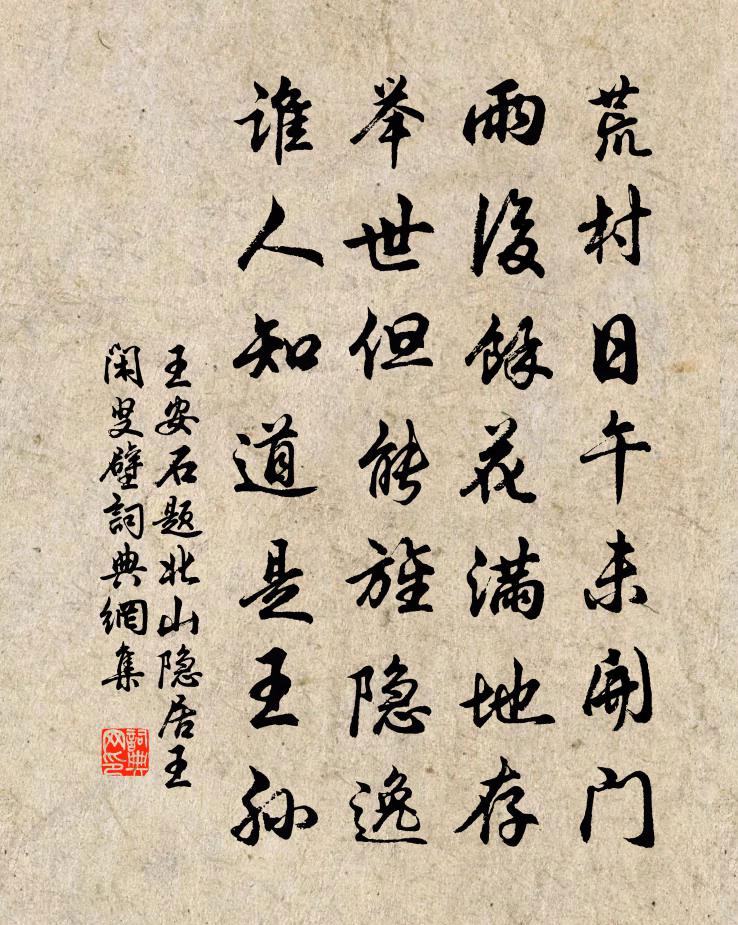 荒村日午未開门
雨後餘花满地存
举世但能旌隐逸
谁人知道是王孙
王安石题北山隐居王
闲叟壁詞典網集
詞典网印